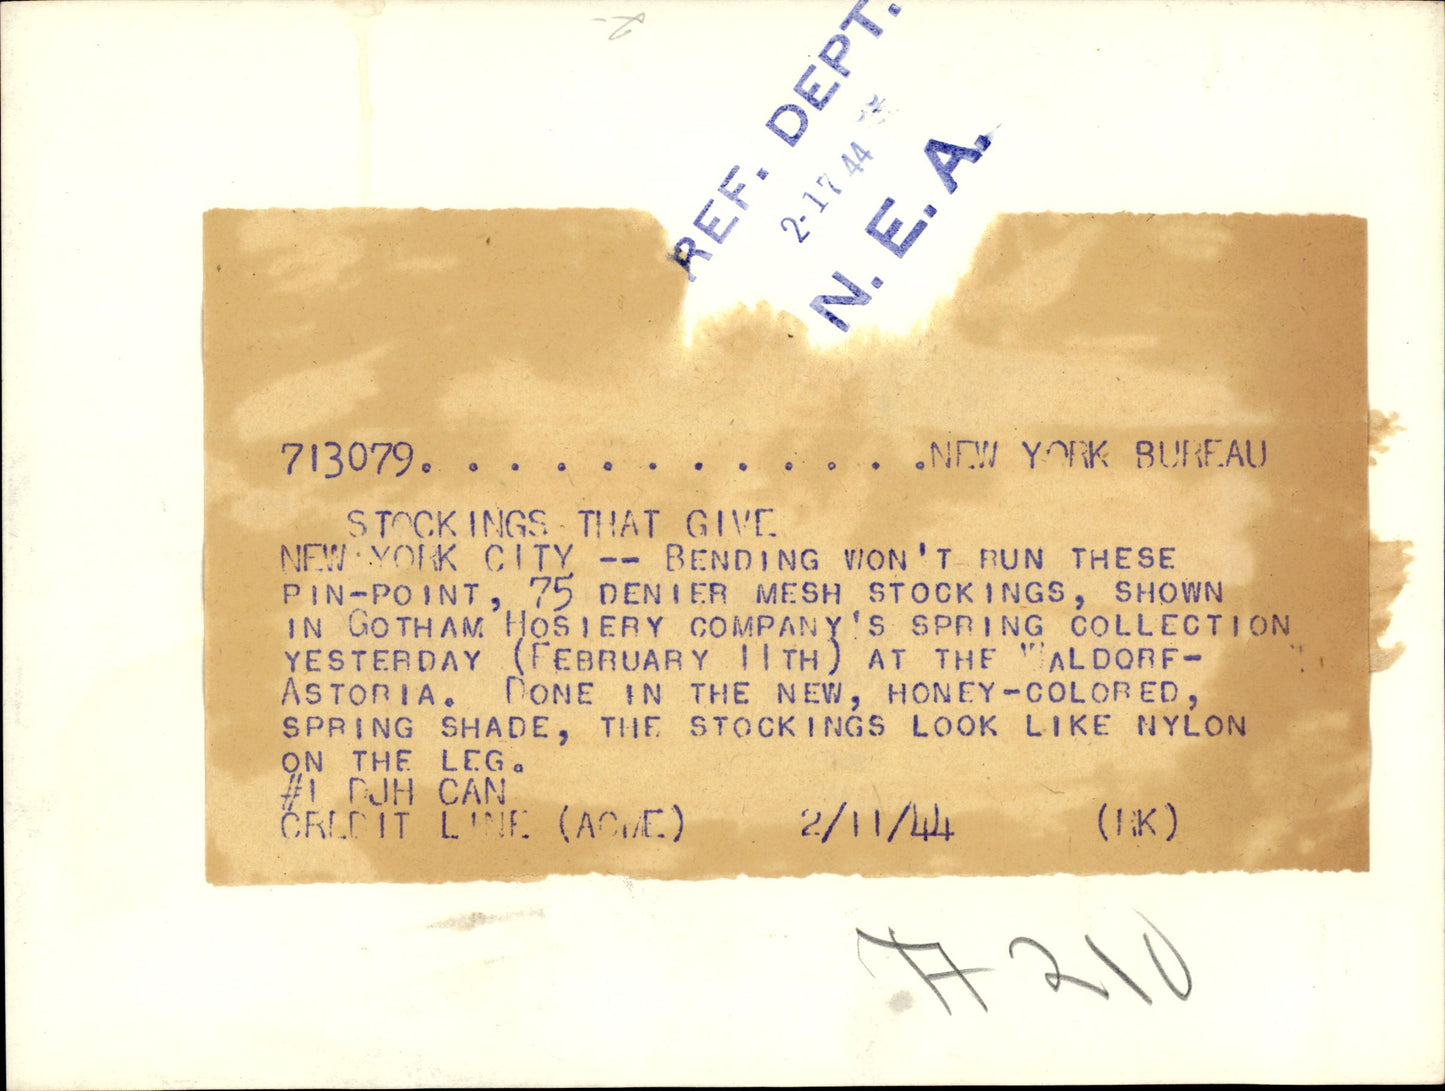 REF. DEPT.
2-17 44
N. E. A.
713079. . . . . . . . . . . .NEW YORK BUREAU
STOCKINGS THAT GIVE
NEW YORK CITY -- BENDING WON'T RUN THESE
PIN-POINT, 75 DENIER MESH STOCKINGS, SHOWN
IN GOTHAM HOSIERY COMPANY'S SPRING COLLECTION
YESTERDAY (FEBRUARY 11TH) AT THE WALDORF-
ASTORIA. DONE IN THE NEW, HONEY-COLORED,
SPRING SHADE, THE STOCKINGS LOOK LIKE NYLON
ON THE LEG.
#1 DJH CAN
CREDIT LINE (ACME) 2/11/44 (RK)
210